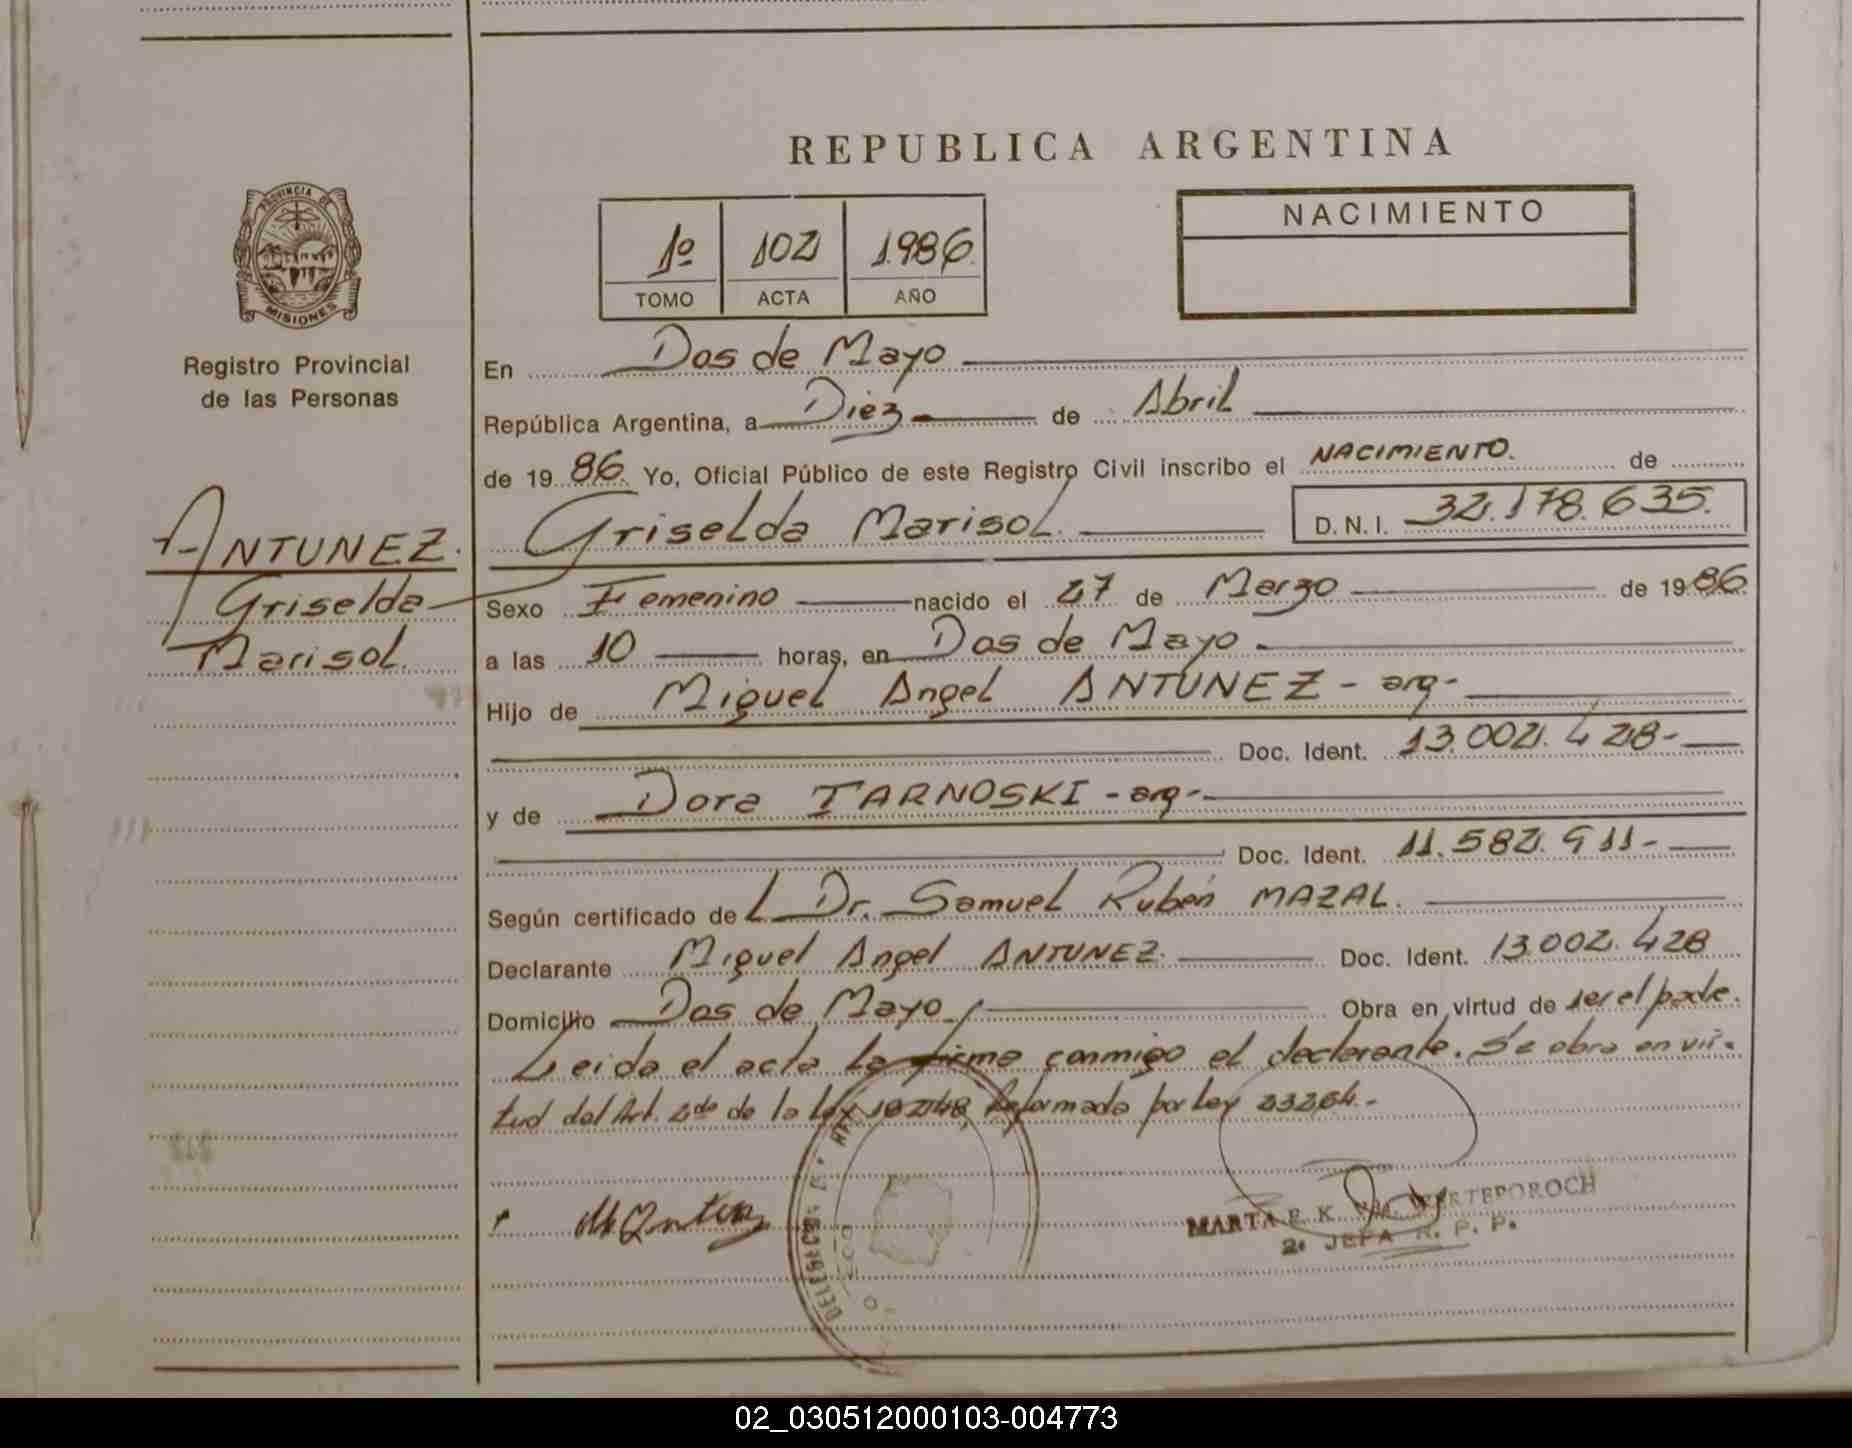 REPUBLICA ARGENTINA
PROVINCIA DE
MISIONES
Registro Provincial
de las Personas
1º 102 1986
TOMO ACTA AÑO
NACIMIENTO
En Dos de Mayo
República Argentina, a Diez de Abril
de 19 86. Yo, Oficial Público de este Registro Civil inscribo el NACIMIENTO. de
Griselda Marisol. D. N. I. 32.178.635.
ANTUNEZ.
Griselda
Marisol.
Sexo Femenino nacido el 27 de Marzo de 19 86.
a las 10 horas, en Dos de Mayo
Hijo de Miguel Angel ANTUNEZ - arg-
Doc. Ident. 13.002.428-
y de Dora TARNOSKI - arg-
Doc. Ident. 11.582.911-
Según certificado de L Dr. Samuel Rubén MAZAL.
Declarante Miguel Angel ANTUNEZ. Doc. Ident. 13.002.428
Domicilio Dos de Mayo Obra en virtud de ser el padre.
Leida el acta la firma conmigo el declarante. Se obra en vir-
tud del Art. 2do de la Ley 18248, Reformada por Ley 23264.-
MARTA E. K.
2a JEFA R. P. P.
02_030512000103-004773